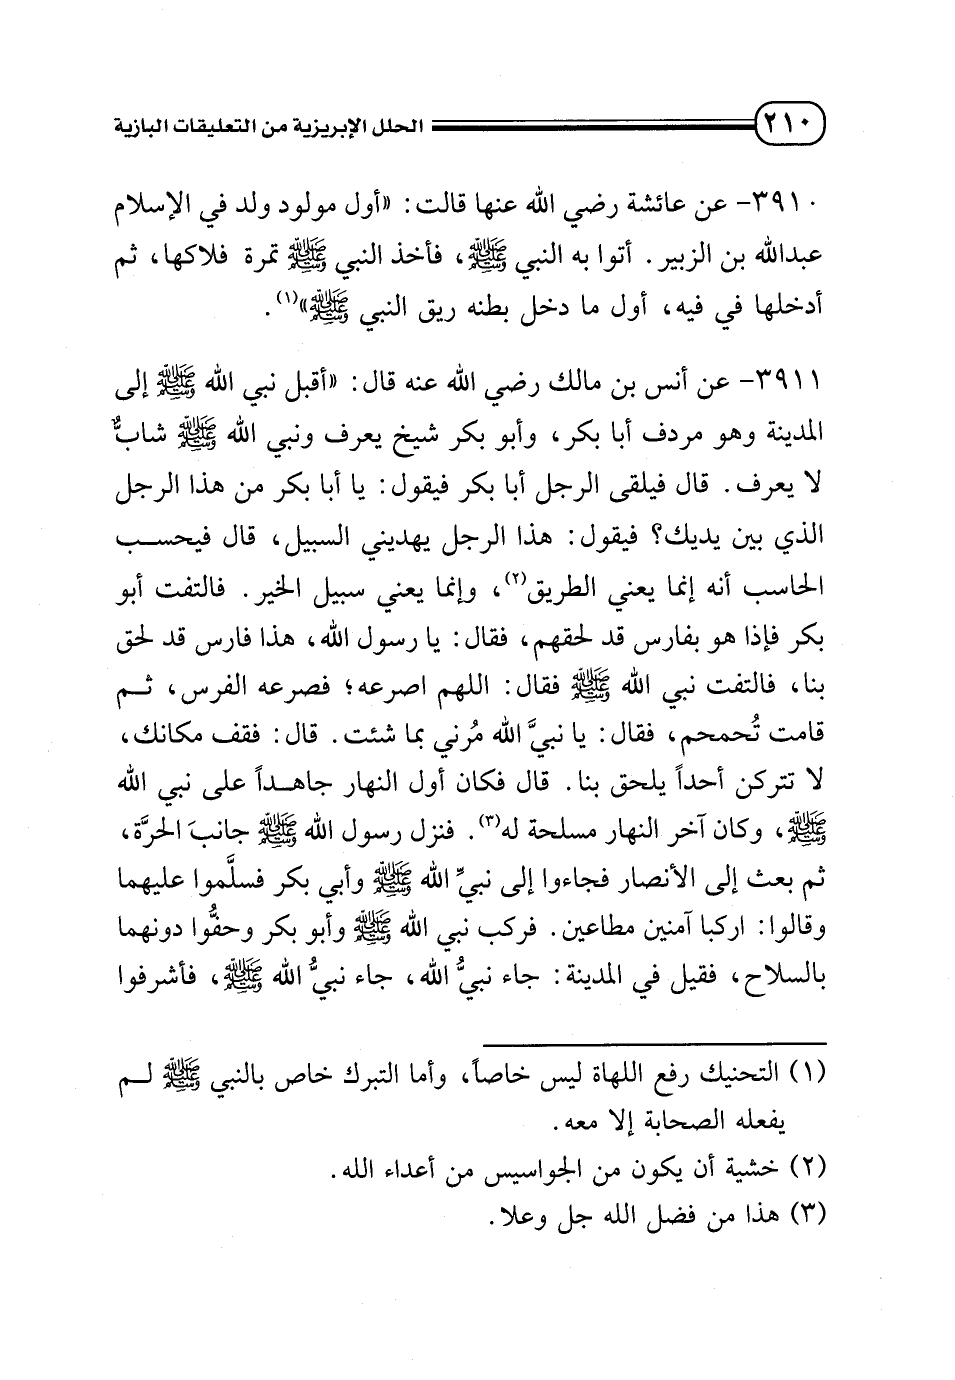 ٢١٠ الحلل الإبريزية من التعليقات البازية
٣٩١٠- عن عائشة رضي الله عنها قالت: «أول مولود ولد في الإسلام
عبدالله بن الزبير. أتوا به النبي ﷺ، فأخذ النبي ﷺ تمرة فلاكها، ثم
أدخلها في فيه، أول ما دخل بطنه ريق النبي ﷺ»(١).
٣٩١١- عن أنس بن مالك رضي الله عنه قال: «أقبل نبي الله ﷺ إلى
المدينة وهو مردف أبا بكر، وأبو بكر شيخ يعرف ونبي الله ﷺ شابٌّ
لا يعرف. قال فيلقى الرجل أبا بكر فيقول: يا أبا بكر من هذا الرجل
الذي بين يديك؟ فيقول: هذا الرجل يهديني السبيل، قال فيحسب
الحاسب أنه إنما يعني الطريق(٢)، وإنما يعني سبيل الخير. فالتفت أبو
بكر فإذا هو بفارس قد لحقهم، فقال: يا رسول الله، هذا فارس قد لحق
بنا، فالتفت نبي الله ﷺ فقال: اللهم اصرعه؛ فصرعه الفرس، ثم
قامت تُحمحم، فقال: يا نبيَّ الله مُرني بما شئت. قال: فقف مكانك،
لا تتركن أحداً يلحق بنا. قال فكان أول النهار جاهداً على نبي الله
ﷺ، وكان آخر النهار مسلحة له(٣). فنزل رسول الله ﷺ جانبَ الحرَّة،
ثم بعث إلى الأنصار فجاءوا إلى نبيِّ الله ﷺ وأبي بكر فسلَّموا عليهما
وقالوا: اركبا آمنين مطاعين. فركب نبي الله ﷺ وأبو بكر وحفُّوا دونهما
بالسلاح، فقيل في المدينة: جاء نبيُّ الله، جاء نبيُّ الله ﷺ، فأشرفوا
(١) التحنيك رفع اللهاة ليس خاصاً، وأما التبرك خاص بالنبي ﷺ لم
يفعله الصحابة إلا معه.
(٢) خشية أن يكون من الجواسيس من أعداء الله.
(٣) هذا من فضل الله جل وعلا.